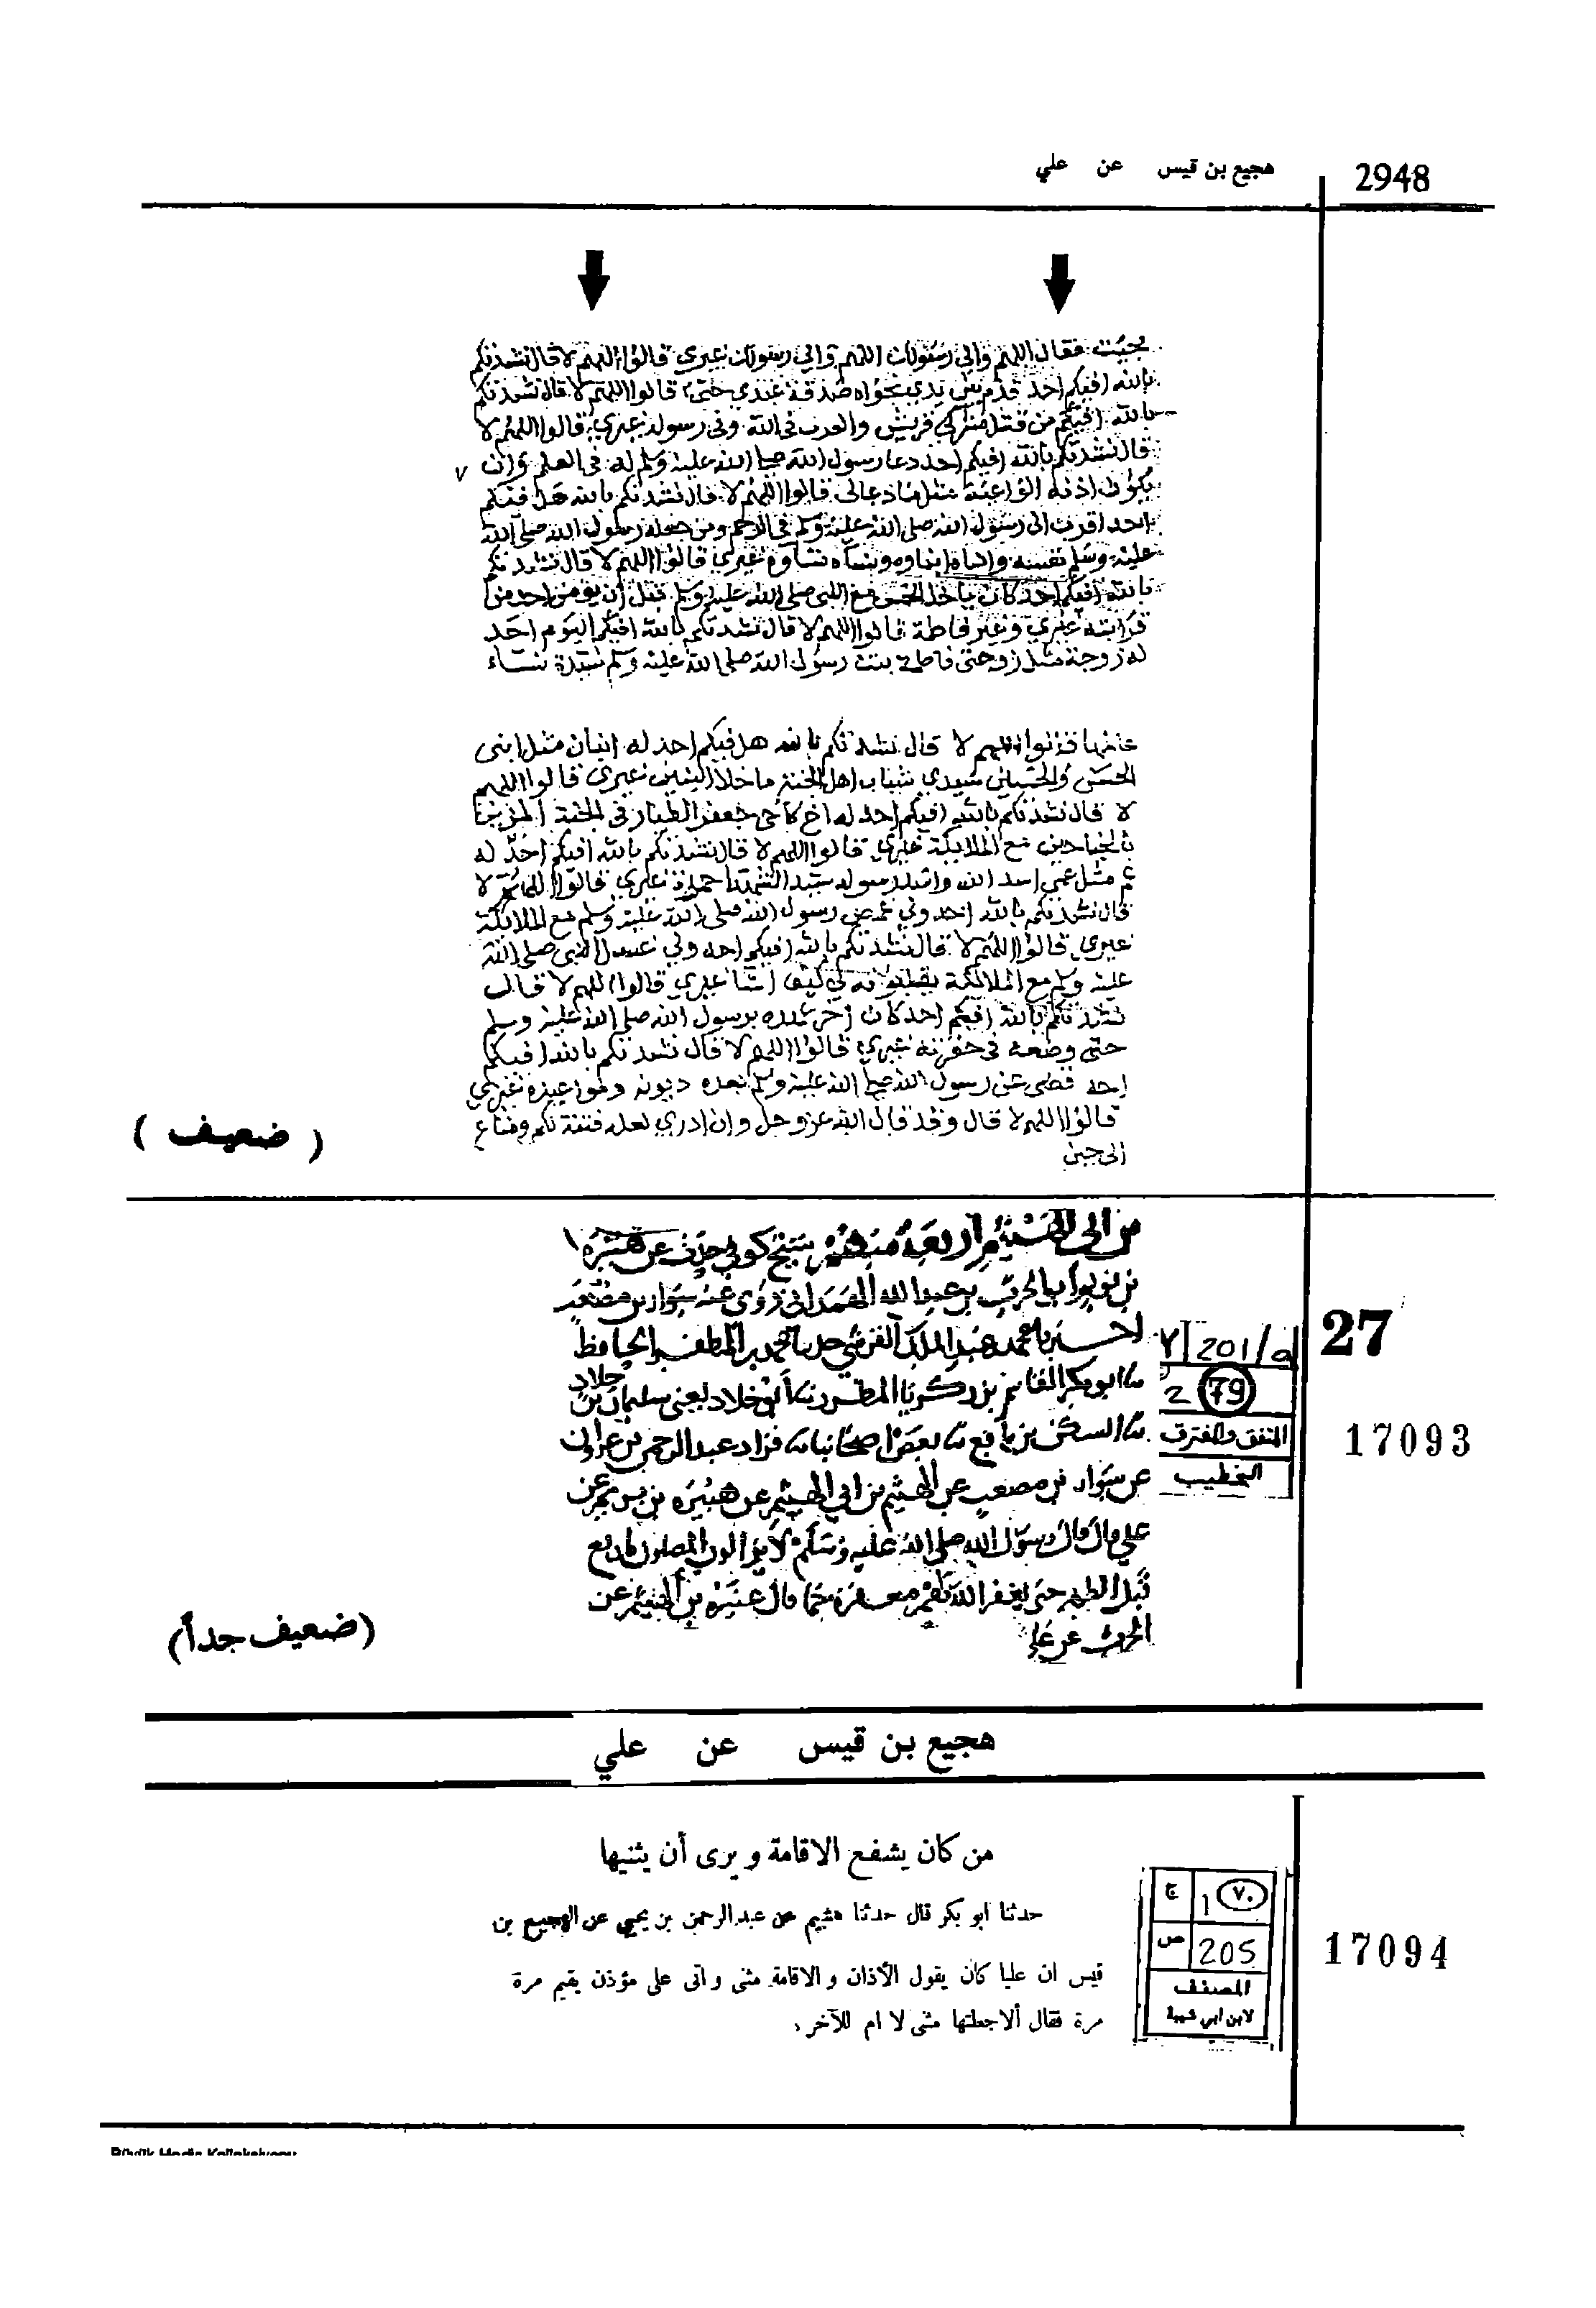 2948
هجيع بن قيس عن علي
فقال اللهم والي رسولك اللهم والي رسولك غيري قالوا اللهم لا قال نشدتكم
بالله افيكم احد قدم بين يدي نجواه صدقة غيري حتى قالوا اللهم لا قال نشدتكم
بالله افيكم من قتل مشركي قريش والعرب في الله وفي رسوله غيري قالوا اللهم لا
قال نشدتكم بالله افيكم احد دعا رسول الله صلى الله عليه وسلم له في العلم وان
يكون اذنه الواعية مثل ما دعا لي قالوا اللهم لا قال نشدتكم بالله هل فيكم
احد اقرب الى رسول الله صلى الله عليه وسلم في الرحم ومن جعله رسول الله صلى الله
عليه وسلم نفسه وابناه ابناوه ونساه نساوه غيري قالوا اللهم لا قال نشدتكم
بالله افيكم احد كان ياخذ الخمس مع النبي صلى الله عليه وسلم قبل ان يومن احد من
قرابته غيري وغير فاطمة قالوا اللهم لا قال نشدتكم بالله افيكم اليوم احد
له زوجة مثل زوجتي فاطمة بنت رسول الله صلى الله عليه وسلم سيدة نساء
قالوا اللهم لا قال نشدتكم بالله هل فيكم احد له ابنان مثل ابني
الحسن والحسين سيدي شباب اهل الجنة ما خلا النبيين غيري قالوا اللهم
لا قال نشدتكم بالله افيكم احد له اخ كاخي جعفر الطيار في الجنة المزين
بالجناحين مع الملايكة غيري قالوا اللهم لا قال نشدتكم بالله افيكم احد له
عم مثل عمي اسد الله واسد رسوله سيد الشهدا حمزة غيري قالوا اللهم لا
قال نشدتكم بالله احد ولي غمض رسول الله صلى الله عليه وسلم مع الملايكة
غيري قالوا اللهم لا قال نشدتكم بالله افيكم احد ولي غسل النبي صلى الله
عليه وسلم مع الملائكة يقلبونه لي كيف اشا غيري قالوا اللهم لا قال
نشدتكم بالله افيكم احد كان اخر عهده برسول الله صلى الله عليه وسلم
حتى وضعه في حفرته غيري قالوا اللهم لا قال نشدتكم بالله افيكم
احد قضى عن رسول الله صلى الله عليه وسلم بعده ديونه ومواعيده غيري
قالوا اللهم لا قال وقد قال الله عز وجل وان ادري لعله فتنة لكم ومتاع
الى حين
( ضعيف )
شيخ كوفي حدث عن هبيرة
بن عبد الله الهمداني روى عنه سوار بن مصعب
محمد بن عبد الملك القرشي محمد بن المظفر الحافظ
ابو بكر القاسم بن زكريا المطرز ابو خلاد يعني سليمان بن خلاد
السكن بن نافع بعض اصحابنا
عن سوار بن مصعب عن الهيثم بن ابي الهيثم عن هبيرة بن يريم عن
علي قال قال رسول الله صلى الله عليه وسلم لا يزالون المصلون اربع
قبل الظهر حتى يغفر الله لهم مغفرة حتما
الحرث عن علي
(ضعيف جداً)
27
201/a
79
المتفق والمفترق
الخطيب
17093
هجيع بن قيس عن علي
من كان يشفع الاقامة و يرى أن يثنيها
حدثنا ابو بكر قال حدثنا هشيم عن عبد الرحمن بن يحيي عن الهجيع بن
قيس ان عليا كان يقول الأذان و الاقامة مثنى و اتى على مؤذن يقيم مرة
مرة فقال ألا جعلتها مثنى لا ام للآخر.
ج ١ ٧٠
ص 205
المصنف
لابن ابي شيبة
17094